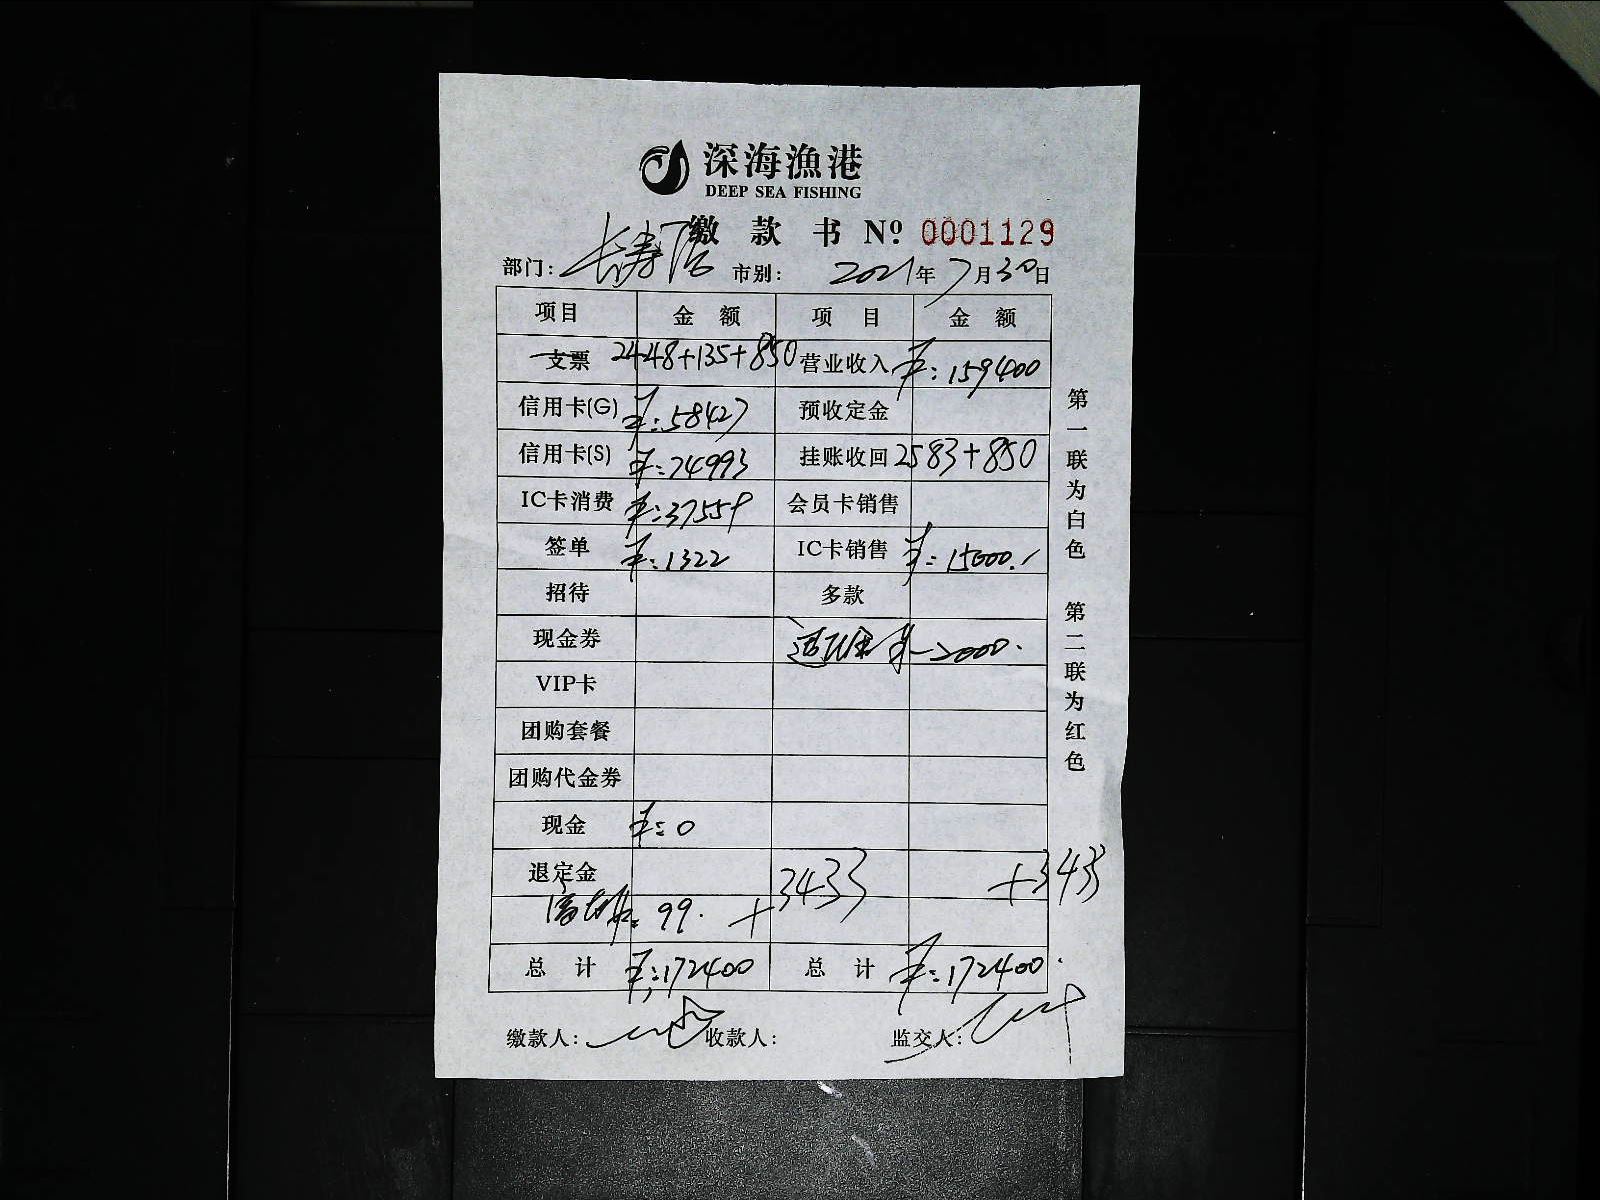 深海漁港
DEEP SEA FISHING
缴款书 Nº 0001129
部门: 长寿店 市别: 2021年7月30日
项目 金额 项目 金额
支票 2448+135+850 营业收入 ¥:159400
信用卡(G) ¥:58427 预收定金
信用卡(S) ¥:74993 挂账收回 2583+850
IC卡消费 ¥:37559 会员卡销售
签单 ¥:1322 IC卡销售 ¥:15000.
招待 多款
现金券 -2000.
VIP卡
团购套餐
团购代金券
现金 ¥:0
退定金 +3433 +3433
99.
总计 ¥:172400 总计 ¥:172400.
缴款人: 收款人: 监交人:
第一联为白色 第二联为红色